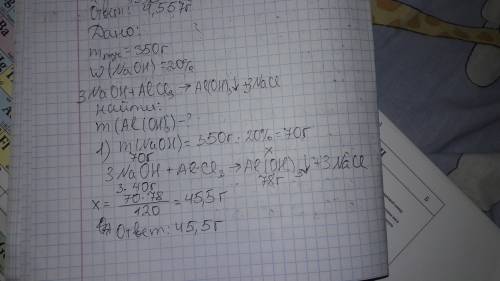 Ответ: 4,557г
Дано:
m = 350г
W (NaOH) = 20%
3NaOH + AlCl₃ → Al(OH)₃↓ + 3NaCl
найти:
m (Al(OH)₃) - ?
1) m(NaOH) = 350г · 20% = 70г
70г x
3NaOH + AlCl₃ → Al(OH)₃↓ + 3NaCl
3·40г 78г
x = 70·78 / 120 = 45,5г
Ответ: 45,5г